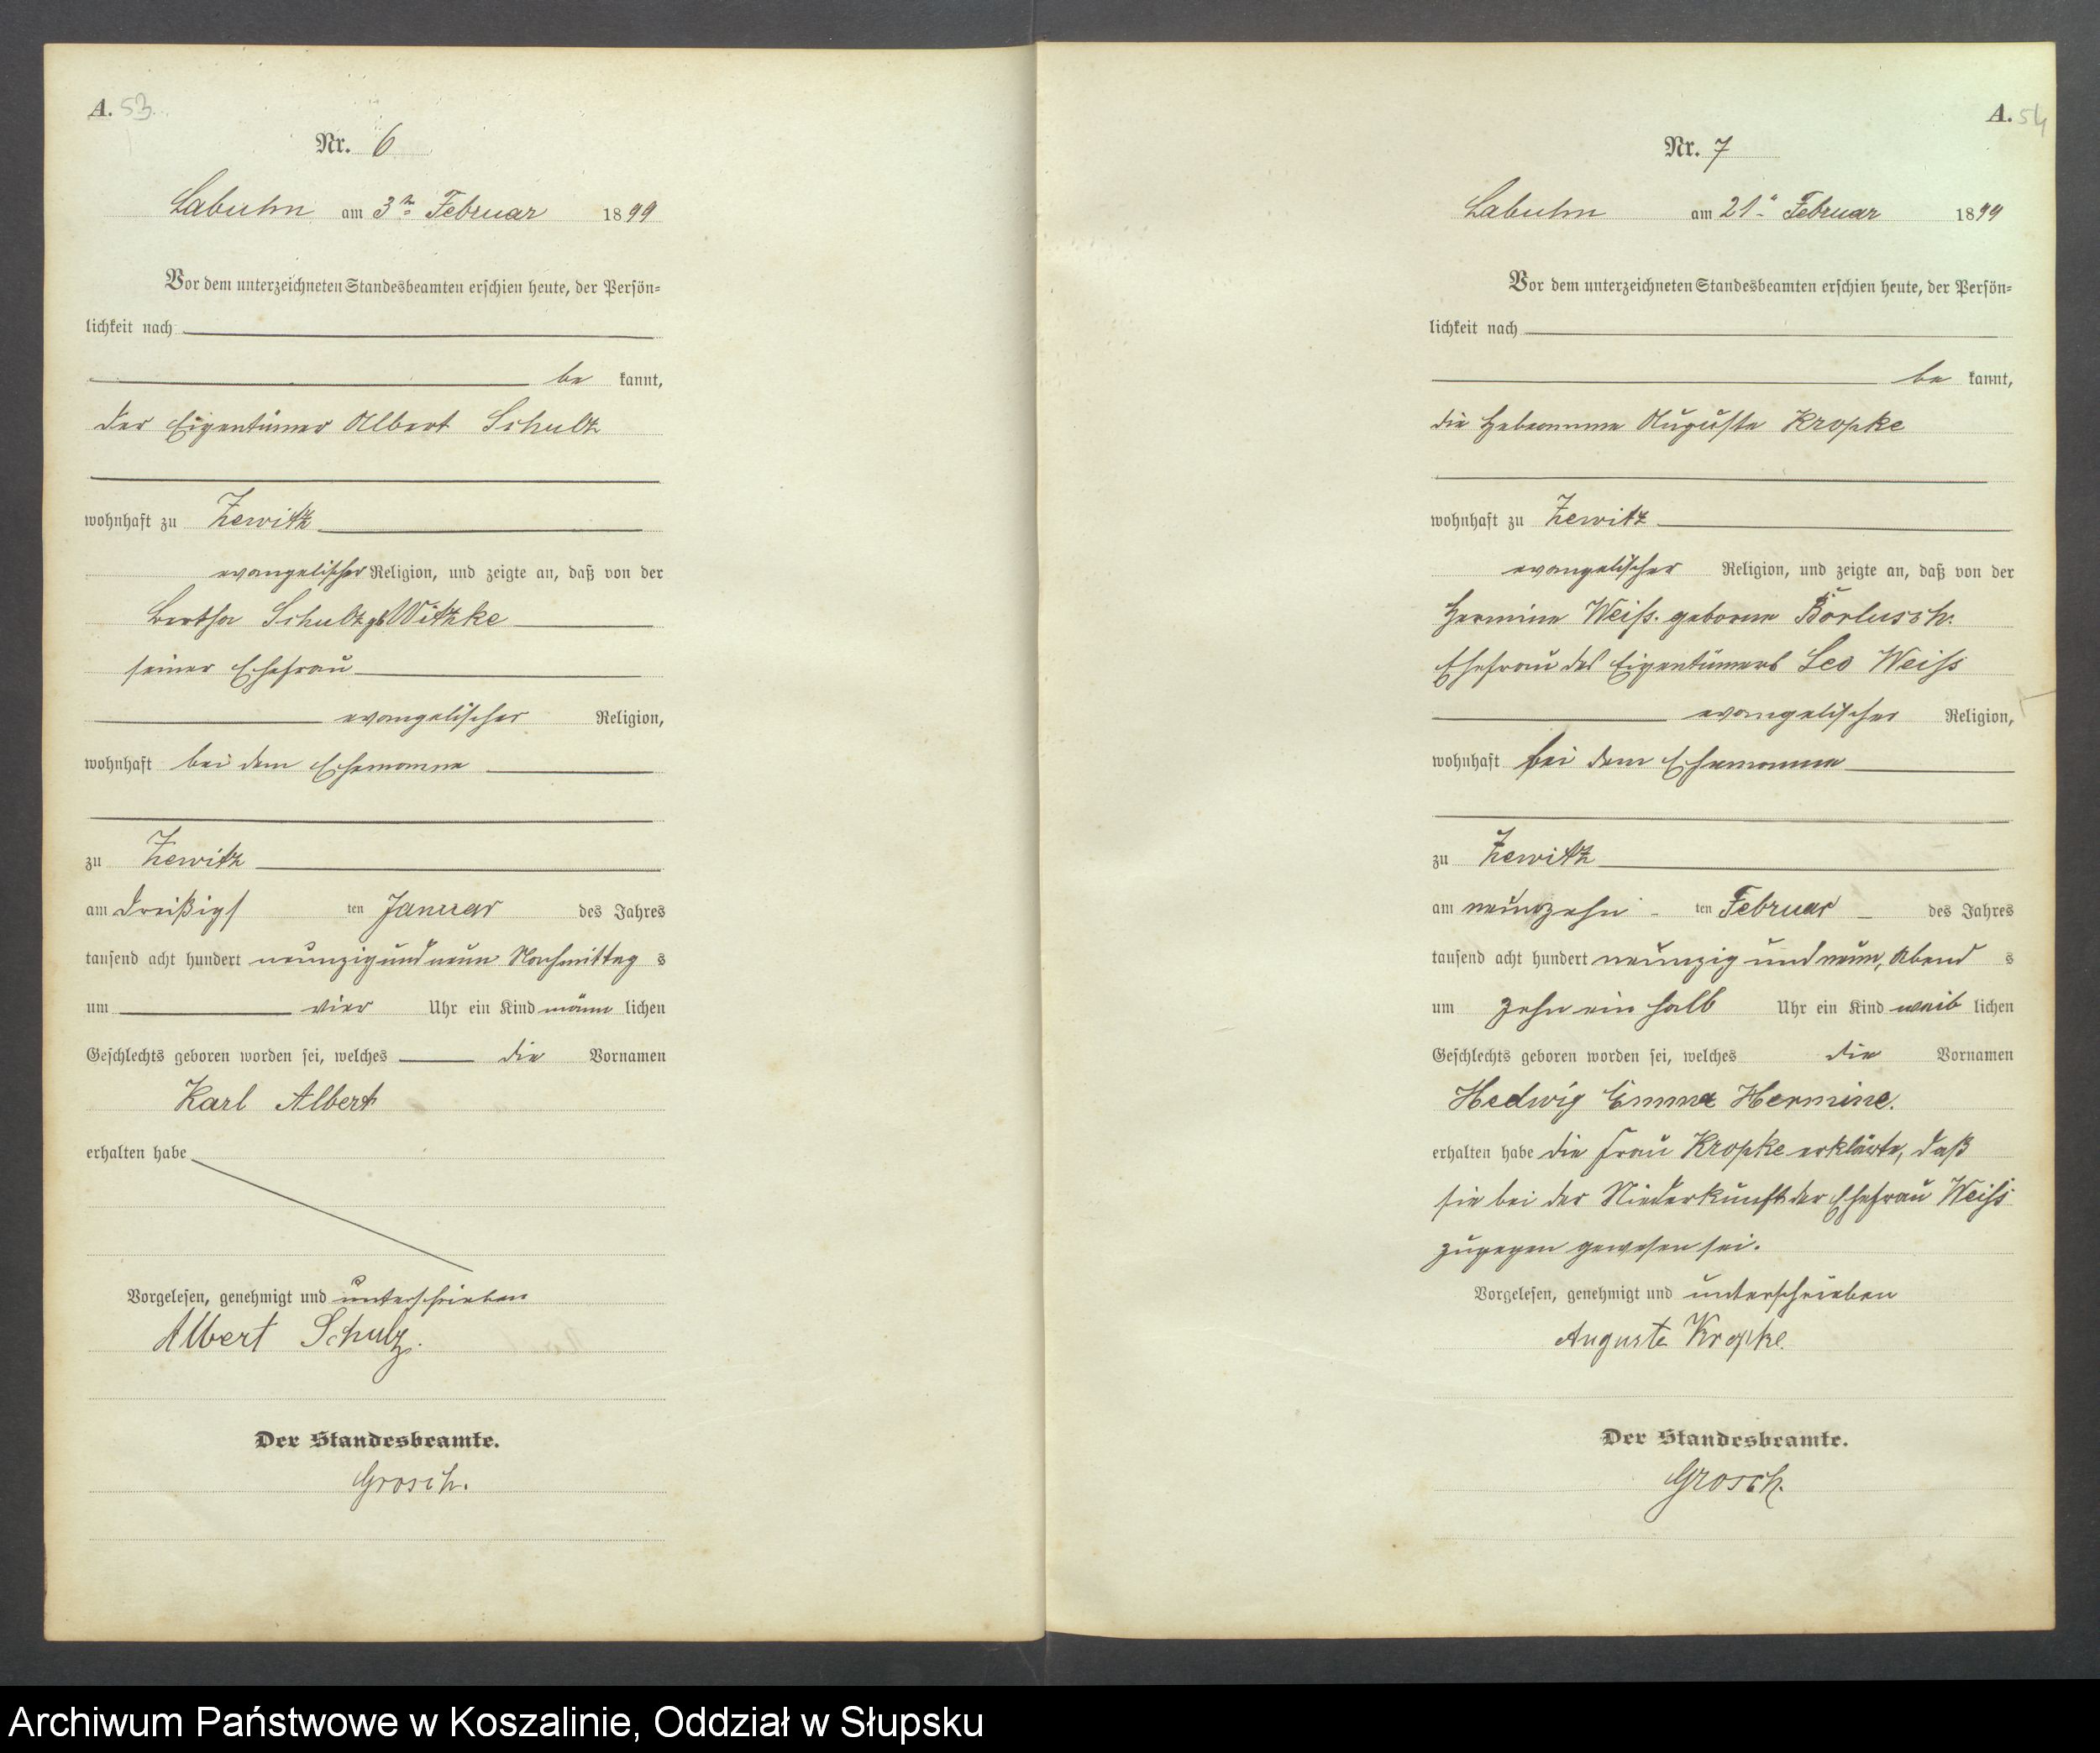 A. 53.
Nr. 6
Labuhn am 3ten Februar 1899
Vor dem unterzeichneten Standesbeamten erschien heute, der Persön-
lichkeit nach
be kannt,
der Eigentümer Albert Schultz
wohnhaft zu Zewitz
evangelischer Religion, und zeigte an, daß von der
Bertha Schultz geb Witzke
seiner Ehefrau
evangelischer Religion,
wohnhaft bei dem Ehemanne
zu Zewitz
am dreißigs ten Januar des Jahres
tausend acht hundert neunzig und neun Nachmittag s
um vier Uhr ein Kind männ lichen
Geschlechts geboren worden sei, welches die Vornamen
Karl Albert
erhalten habe
Vorgelesen, genehmigt und unterschrieben
Albert Schulz.
Der Standesbeamte.
Grosch.
A. 54
Nr. 7
Labuhn am 21. Februar 1899
Vor dem unterzeichneten Standesbeamten erschien heute, der Persön-
lichkeit nach
be kannt,
die Hebeamme Auguste Kropke
wohnhaft zu Zewitz
evangelischer Religion, und zeigte an, daß von der
Hermine Weiß. geborne
Ehefrau des Eigentümers Leo Weiß
evangelischer Religion,
wohnhaft bei dem Ehemanne
zu Zewitz
am neunzehn ten Februar des Jahres
tausend acht hundert neunzig und neun, Abend s
um zehn ein halb Uhr ein Kind weib lichen
Geschlechts geboren worden sei, welches die Vornamen
Hedwig Emma Hermine.
erhalten habe die Frau Kropke erklärte, daß
sie bei der Niederkunft der Ehefrau Weiß
zugegen gewesen sei.
Vorgelesen, genehmigt und unterschrieben
Auguste Kropke.
Der Standesbeamte.
Grosch.
Archiwum Państwowe w Koszalinie, Oddział w Słupsku